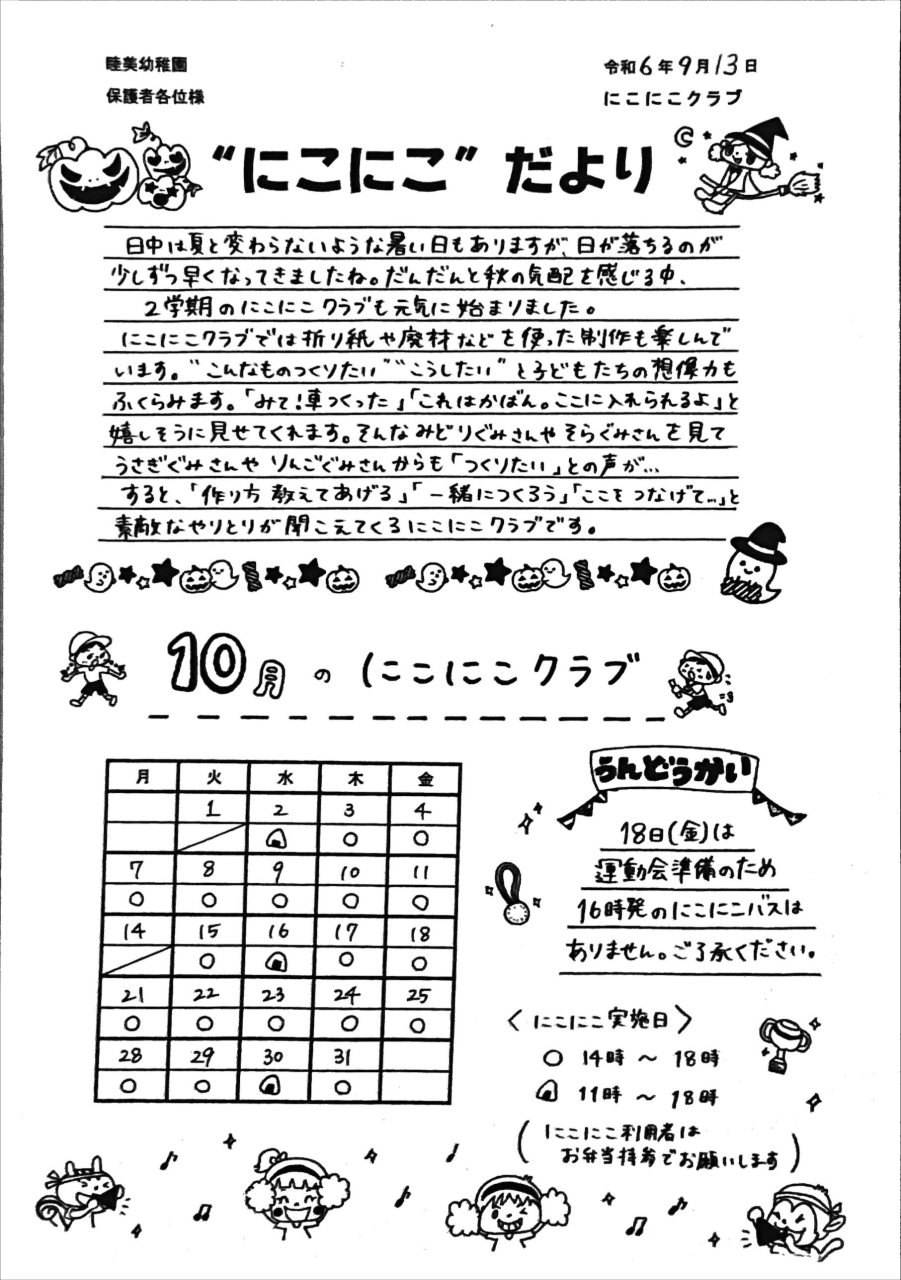 睦美幼稚園
保護者各位様
令和6年9月13日
にこにこクラブ
“にこにこ”だより
日中は夏と変わらないような暑い日もありますが、日が落ちるのが
少しずつ早くなってきましたね。だんだんと秋の気配を感じる中、
2学期のにこにこクラブも元気に始まりました。
にこにこクラブでは折り紙や廃材などを使った制作も楽しんで
います。“こんなものつくりたい”“こうしたい”と子どもたちの想像力も
ふくらみます。「みて!車つくった」「これはかばん。ここに入れられるよ」と
嬉しそうに見せてくれます。そんなみどりぐみさんやそらぐみさんを見て
うさぎぐみさんやりんごぐみさんからも「つくりたい」との声が…
すると、「作り方教えてあげる」「一緒につくろう」「ここをつなげて…」と
素敵なやりとりが聞こえてくるにこにこクラブです。
10月のにこにこクラブ
月 火 水 木 金
1 2 3 4
○ ○
7 8 9 10 11
○ ○ ○ ○ ○
14 15 16 17 18
○ ○ ○
21 22 23 24 25
○ ○ ○ ○ ○
28 29 30 31
○ ○ ○
うんどうかい
18日(金)は
運動会準備のため
16時発のにこにこバスは
ありません。ご了承ください。
〈にこにこ実施日〉
○ 14時〜18時
11時〜18時
(にこにこ利用者は
お弁当持参でお願いします)